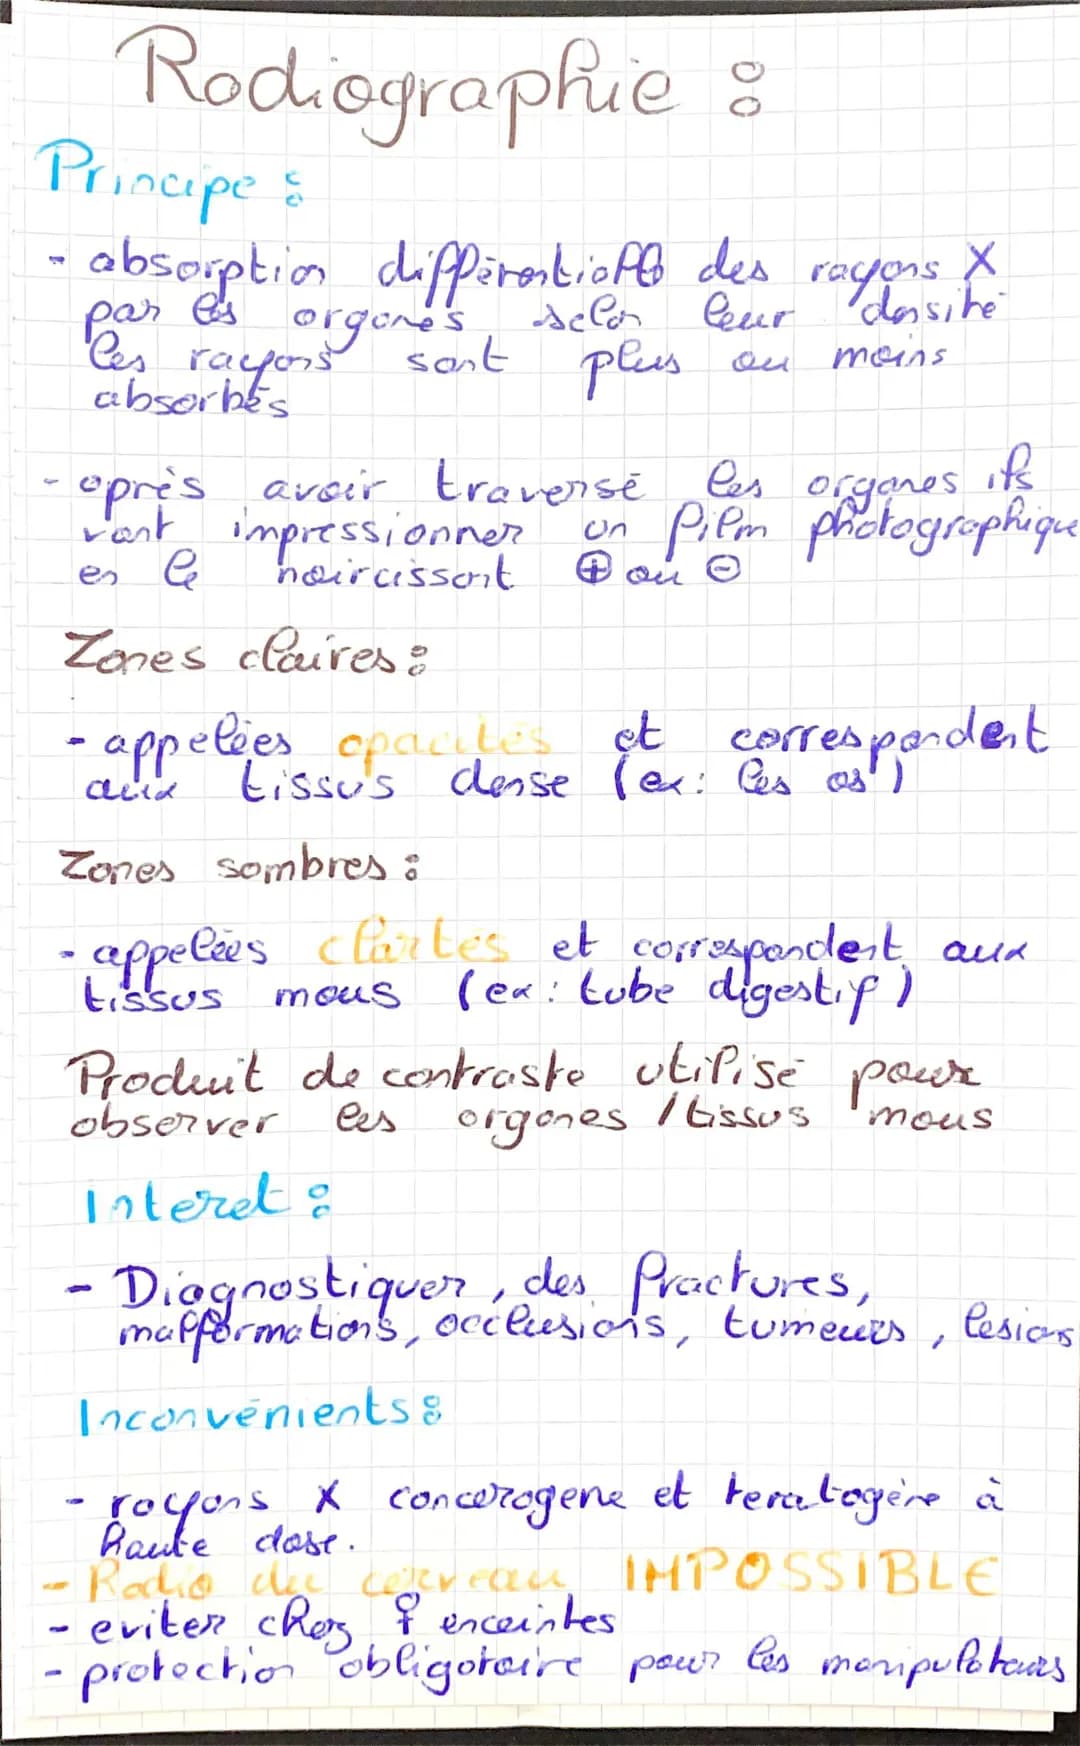 Radiographie :
Principe :
- absorption différentielle des rayons X
par les organes selon leur densité
les rayons sont plus ou moins
absorbés
- après avoir traversé les organes ils
vont impressionner un film photographique
en le noircissant ⊕ ou ⊖
Zones claires :
- appelées opacités et correspondent
aux tissus dense (ex: les os)
Zones sombres :
- appelées clartés et correspondent aux
tissus mous (ex: tube digestif)
Produit de contraste utilisé pour
observer les organes / tissus mous
Interet :
- Diagnostiquer, des fractures,
malformations, occlusions, tumeurs, lesions
Inconvénients :
- rayons X cancerogene et teratogène à
haute dose.
- Radio du cerveau IMPOSSIBLE
- eviter chez ♀ enceintes
- protection obligatoire pour les manipulateurs